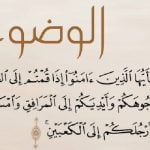 الوضو
يَٰٓأَيُّهَا ٱلَّذِينَ ءَامَنُوٓا۟ إِذَا قُمْتُمْ إِلَى ٱل
جُوهَكُمْ وَأَيْدِيَكُمْ إِلَى ٱلْمَرَافِقِ وَٱمْسَ
رْجُلَكُمْ إِلَى ٱلْكَعْبَيْنِ